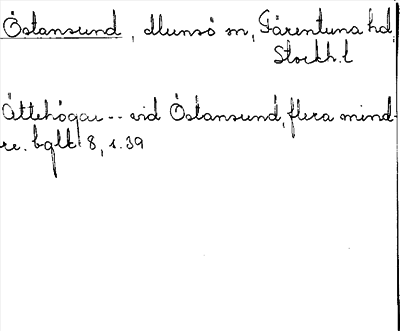 Östansund, Munsö sn, Färentuna hd,
Stockh. l
Ättehögar -- vid Östansund, flera mind-
re. bglt 8, s. 39